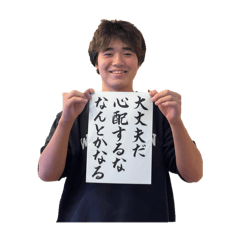 大丈夫だ
心配するな
なんとかなる